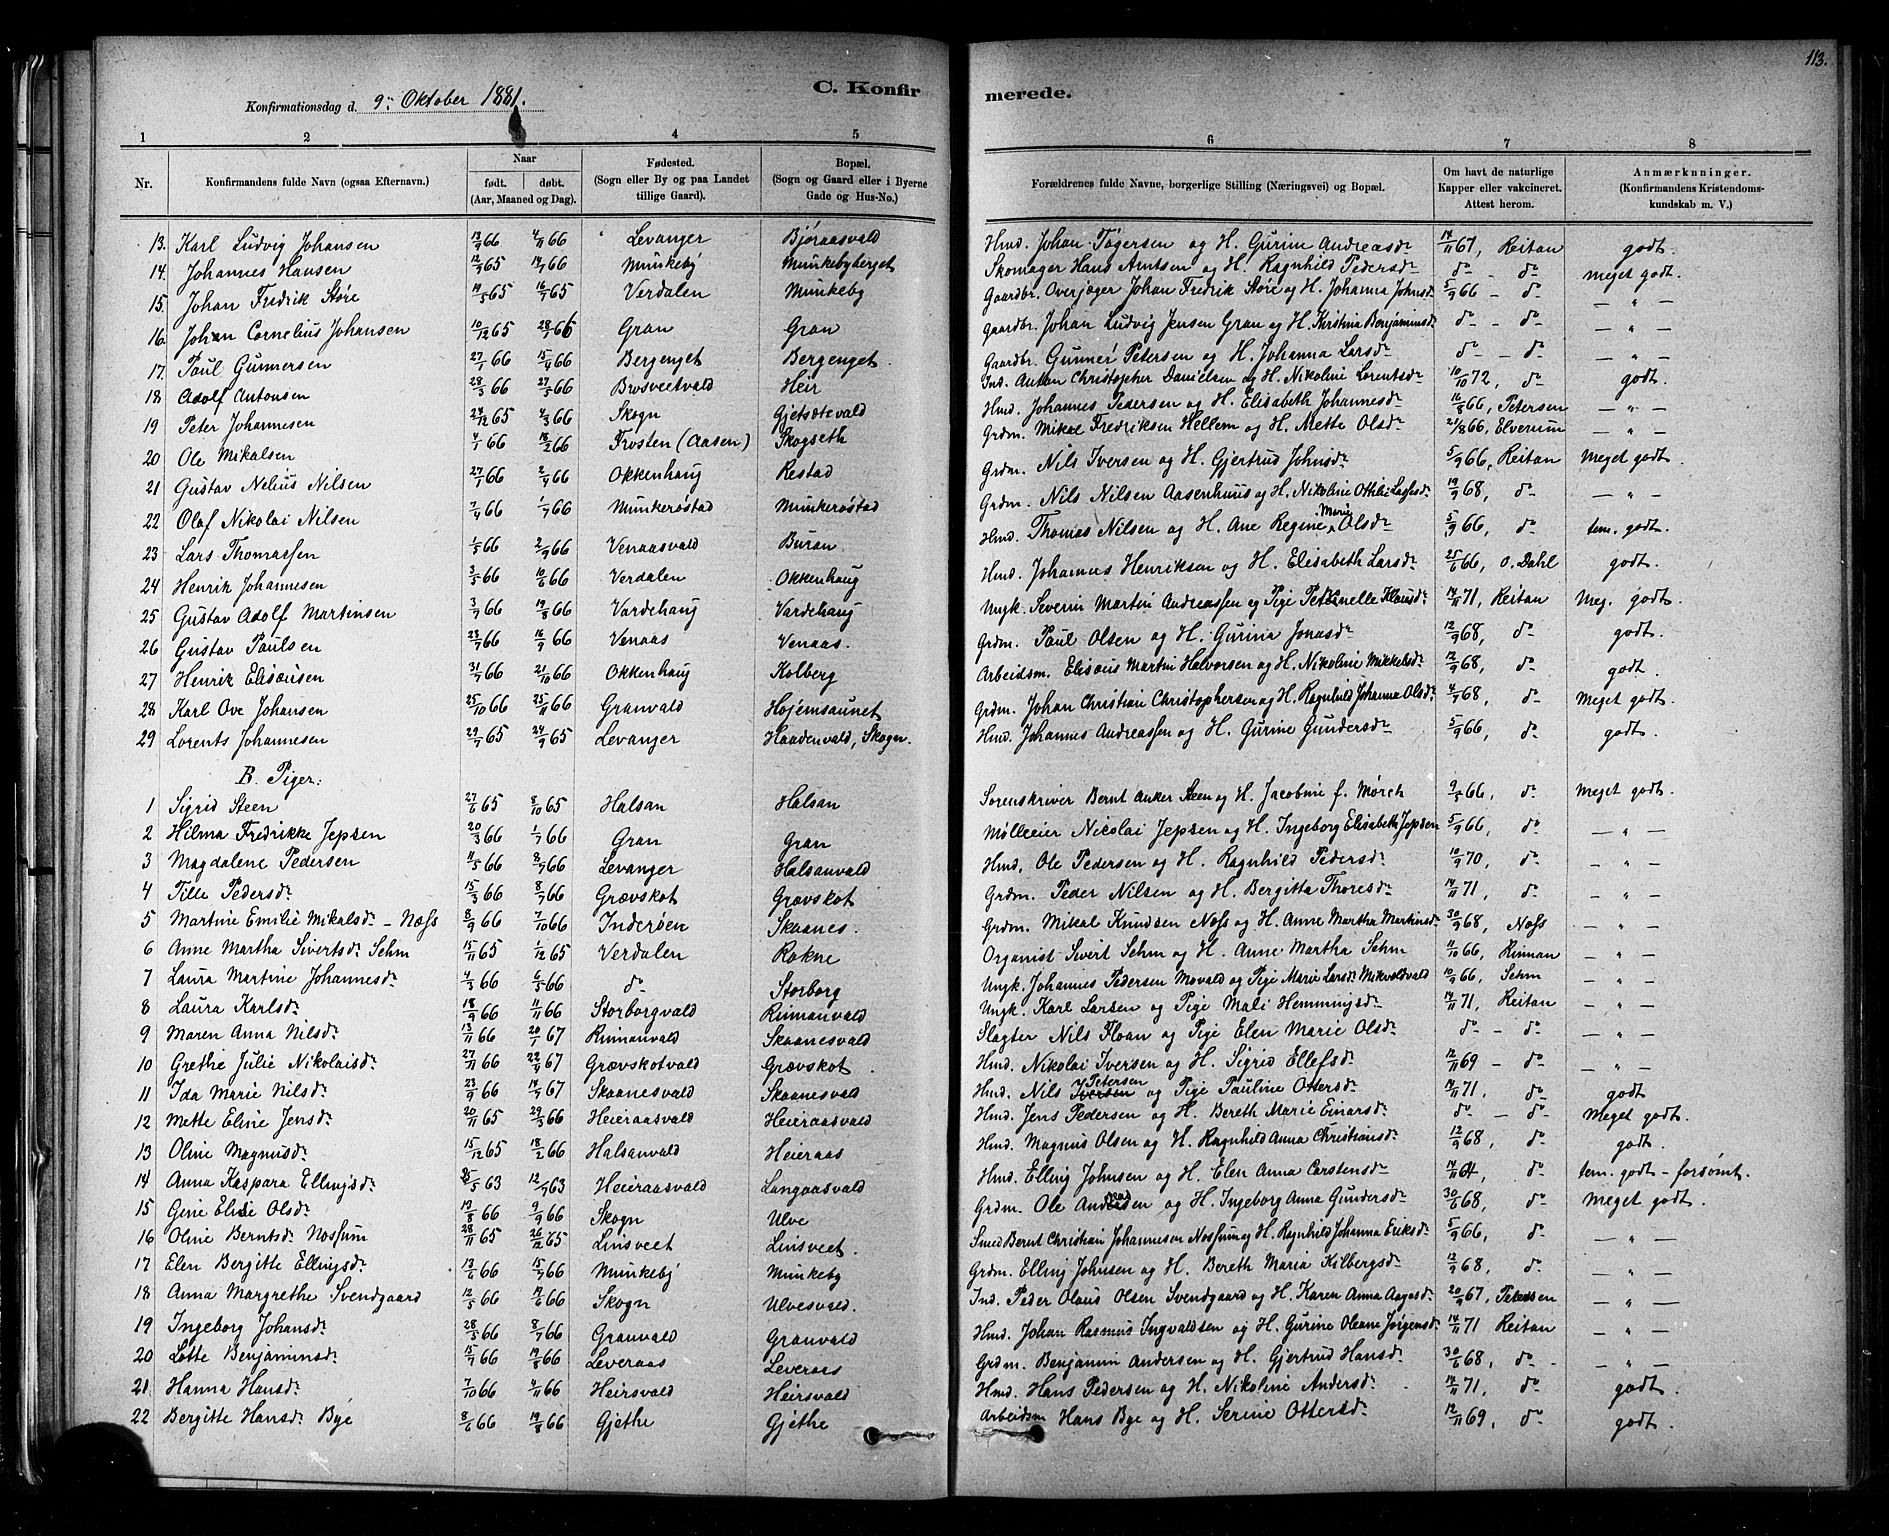 113.
Konfirmationsdag d. 9de Oktober 1881.
C. Konfirmerede.
1 2 3 4 5 6 7 8
Nr. Konfirmandens fulde Navn (ogsaa Efternavn). Naar født. døbt. (Aar, Maaned og Dag). Fødested. (Sogn eller By og paa Landet tillige Gaard). Bopæl. (Sogn og Gaard eller i Byerne Gade og Hus-No.) Forældrenes fulde Navne, borgerlige Stilling (Næringsvei) og Bopæl. Om havt de naturlige Kapper eller vakcineret. Attest herom. Anmærkninger. (Konfirmandens Kristendomskundskab m. V.)
13. Karl Ludvig Johansen 13/9 66 4/11 66 Levanger Bjøraasvald Hmd. Johan Tøgersen og H. Gurine Andreasdr 14/11 67, Reitan godt.
14. Johannes Hansen 12/9 65 14/7 66 Munkeby Munkebyberget Skomager Hans Arntsen og H. Ragnhild Pedersdr do - do meget godt.
15. Johan Fredrik Støre 19/5 65 16/7 65 Verdalen Munkeby Gaardbr. Overjæger Johan Fredrik Støre og H. Johanna Johnsdr 5/9 66 - do — " —
16. Johan Cornelius Johansen 10/12 65 28/1 66 Gran Gran Gaardbr. Johan Ludvig Jensen Gran og H. Kirstina Benjaminsdr do - do — " —
17. Paul Gunnersen 27/1 66 15/4 66 Bergenget Bergenget. Gaardbr. Gunner Petersen og H. Johanna Larsdr do - do — " —
18 Adolf Antonsen 28/3 66 27/5 66 Brosveetvald Heir Ind. Anton Christopher Danielsen og H. Nikoline Lorentsdr 10/10 72, do godt.
19 Peter Johannesen 24/12 65 4/3 66 Skogn Gjetsøtevald Hmd. Johannes Pedersen og H. Elisabeth Johannesdr 16/8 66, Petersen — " —
20 Ole Mikalsen 4/1 66 18/2 66 Frosten (Aasen) Skogseth Grdm. Mikal Fredriksen Hellem og H. Mette Olsdr 21/8 66, Elverum — " —
21 Gustav Nelius Nilsen 27/1 66 2/4 66 Okkenhaug Restad Grdm. Nils Iversen og H. Gjertrud Johnsdr 5/9 66, Reitan Meget godt.
22 Olaf Nikolai Nilsen 7/4 66 1/7 66 Munkerøstad Munkerøstad Grdm. Nils Nilsen Aasenhuus og H. Nikoline Othilie Lassesdr 19/9 68, do — " —
23 Lars Thomassen 1/5 66 2/9 66 Venaasvald Buran Hmd. Thomas Nilsen og H. Ane Regine Marie Olsdr 5/9 66, do tem. godt.
24 Henrik Johannesen 3/5 66 10/6 66 Verdalen Okkenhaug Hmd. Johannes Henriksen og H. Elisabeth Larsdr 25/6 66, O. Dahl godt.
25 Gustav Adolf Martinsen 3/7 66 19/8 66 Vardehaug Vardehaug Ungk. Severin Martin Andreassen og Pige Petronelle Klausdr 14/11 71, Reitan Meg. godt.
26 Gustav Paulsen 23/7 66 16/9 66 Venaas Venaas. Grdm. Paul Olsen og H. Gurina Jonasdr 12/9 68, do godt.
27 Henrik Elisæusen 31/7 66 21/10 66 Okkenhaug Kolberg Arbeidsm. Elisæus Martin Halvorsen og H. Nikoline Mikkelsdr 12/9 68, do godt.
28 Karl Ove Johansen 25/10 66 25/11 66 Granvald Højemsaunet Grdm. Johan Christian Christophersen og H. Ragnhild Johanna Olsdr 4/9 68, do Meget godt.
29 Lorents Johannesen 29/7 65 24/9 65 Levanger Haadenvald, Skogn. Hmd. Johannes Andreassen og H. Gurine Gundersdr 5/9 66, do godt.
B. Piger:
1 Sigrid Steen 27/6 65 8/10 65 Halsan Halsan Sorenskriver Bernt Anker Steen og H. Jacobine f. Mørch 9/5 66, do Meget godt.
2 Hilma Fredrikke Jepsen 20/3 66 1/7 66 Gran Gran Mølleeier Nicolai Jepsen og H. Ingeborg Elisabeth Jepsen 5/9 66, do — " —
3 Magdalene Pedersen 11/5 66 8/7 66 Levanger Halsanvald Hmd. Ole Pedersen og H. Ragnhild Pedersdr 10/9 70, do — " —
4 Tille Pedersdr 15/3 66 8/7 66 Grævskot Grævskot Grdm. Peder Nilsen og H. Bergitta Thoresdr 14/11 71, do — " —
5 Martine Emilie Mikalsdr - Næss 8/9 66 7/10 66 Inderøen Skaanes. Grdm. Mikal Knudsen Næss og H. Anne Martha Martinsdr 30/9 68, Næss — " —
6 Anne Martha Sivertsdr Sehm 15/11 65 1/12 65 Verdalen Rokne Organist Sivert Sehm og H. Anne Martha Sehm 11/10 66, Rinnan — " —
7 Laura Martine Johannesdr 4/3 66 6/5 66 do Storborg Ungk. Johannes Pedersen Movald og Pige Marie Larsdr Mikvoldvald 10/9 66, Sehm — " —
8 Laura Karlsdr 18/9 66 11/11 66 Storborgvald Rinnanvald Ungk. Karl Larsen og Pige Mali Hemmingsdr 14/11 71, Reitan — " —
9 Maren Anna Nilsdr 13/11 66 20/1 67 Rinnanvald Skaanesvald Slagter Nils Floan og Pige Elen Marie Olsdr do - do — " —
10 Grethe Julie Nikolaisdr 27/11 66 22/4 67 Grævskotvald Grævskot. Hmd. Nikolai Iversen og H. Sigrid Ellefsdr 12/11 69 - do — " —
11 Ida Marie Nilsdr 23/9 66 14/7 67 Skaanesvald Skaanesvald Hmd. Nils Iversen Petersen og Pige Pauline Ottersdr 14/11 71, do godt
12 Mette Eline Jensdr 20/11 65 29/3 66 Heieraasvald Heieraasvald Hmd. Jens Pedersen og H. Bereth Marie Einarsdr do - do Meget godt.
13 Oline Magnusdr 15/12 65 18/2 66 Halsanvald Heieraas Hmd. Magnus Olsen og H. Ragnhild Anna Christiansdr 12/9 68, do godt.
14 Anna Kaspara Ellingsdr 25/5 63 12/7 63 Heieraasvald Langaasvald Hmd. Elling Johnsen og H. Elen Anna Carstensdr 14/11 64, do tem. godt - forsømt.
15 Gine Elise Olsdr 13/8 66 9/9 66 Skogn Ulve Grdm. Ole og H. Ingeborg Anna Gundersdr 30/6 68, do Meget godt.
16 Oline Berntsdr Nossum 28/11 65 26/12 65 Linsveet Linsveet. Smed Bernt Christian Johannesen Nossum og H. Ragnhild Johanna Eriksdr 5/9 66, do — " —
17 Elen Bergitte Ellingsdr 13/6 66 15/7 66 Munkeby Munkeby Grdm. Elling Johnsen og H. Bereth Maria Kilbergsdr 12/9 68, do — " —
18 Anna Margrethe Svendgaard 12/5 66 17/6 66 Skogn Ulvesvald. Ind. Peder Olaus Olsen Svendgaard og H. Karen Anna Aagesdr 20/9 67, Petersen — " —
19 Ingeborg Johansdr 28/5 66 8/7 66 Granvald Granvald Hmd. Johan Rasmus Ingvaldsen og H. Gurine Oleane Jørgensdr 14/11 71 Reitan — " —
20 Lotte Benjaminsdr 15/7 66 19/8 66 Leveraas Leveraas Grdm. Benjamin Andersen og H. Gjertrud Hansdr 30/6 68, do - — " —
21 Hanna Hansdr 7/10 66 4/11 66 Heirsvald Heirsvald Hmd. Hans Pedersen og H. Nikoline Andersdr 14/11 71, do godt.
22 Bergitte Hansdr Bye 8/6 66 19/8 66 Gjethe Gjethe Arbeidsm Hans Bye og H. Serine Ottersdr 12/11 69, do godt.